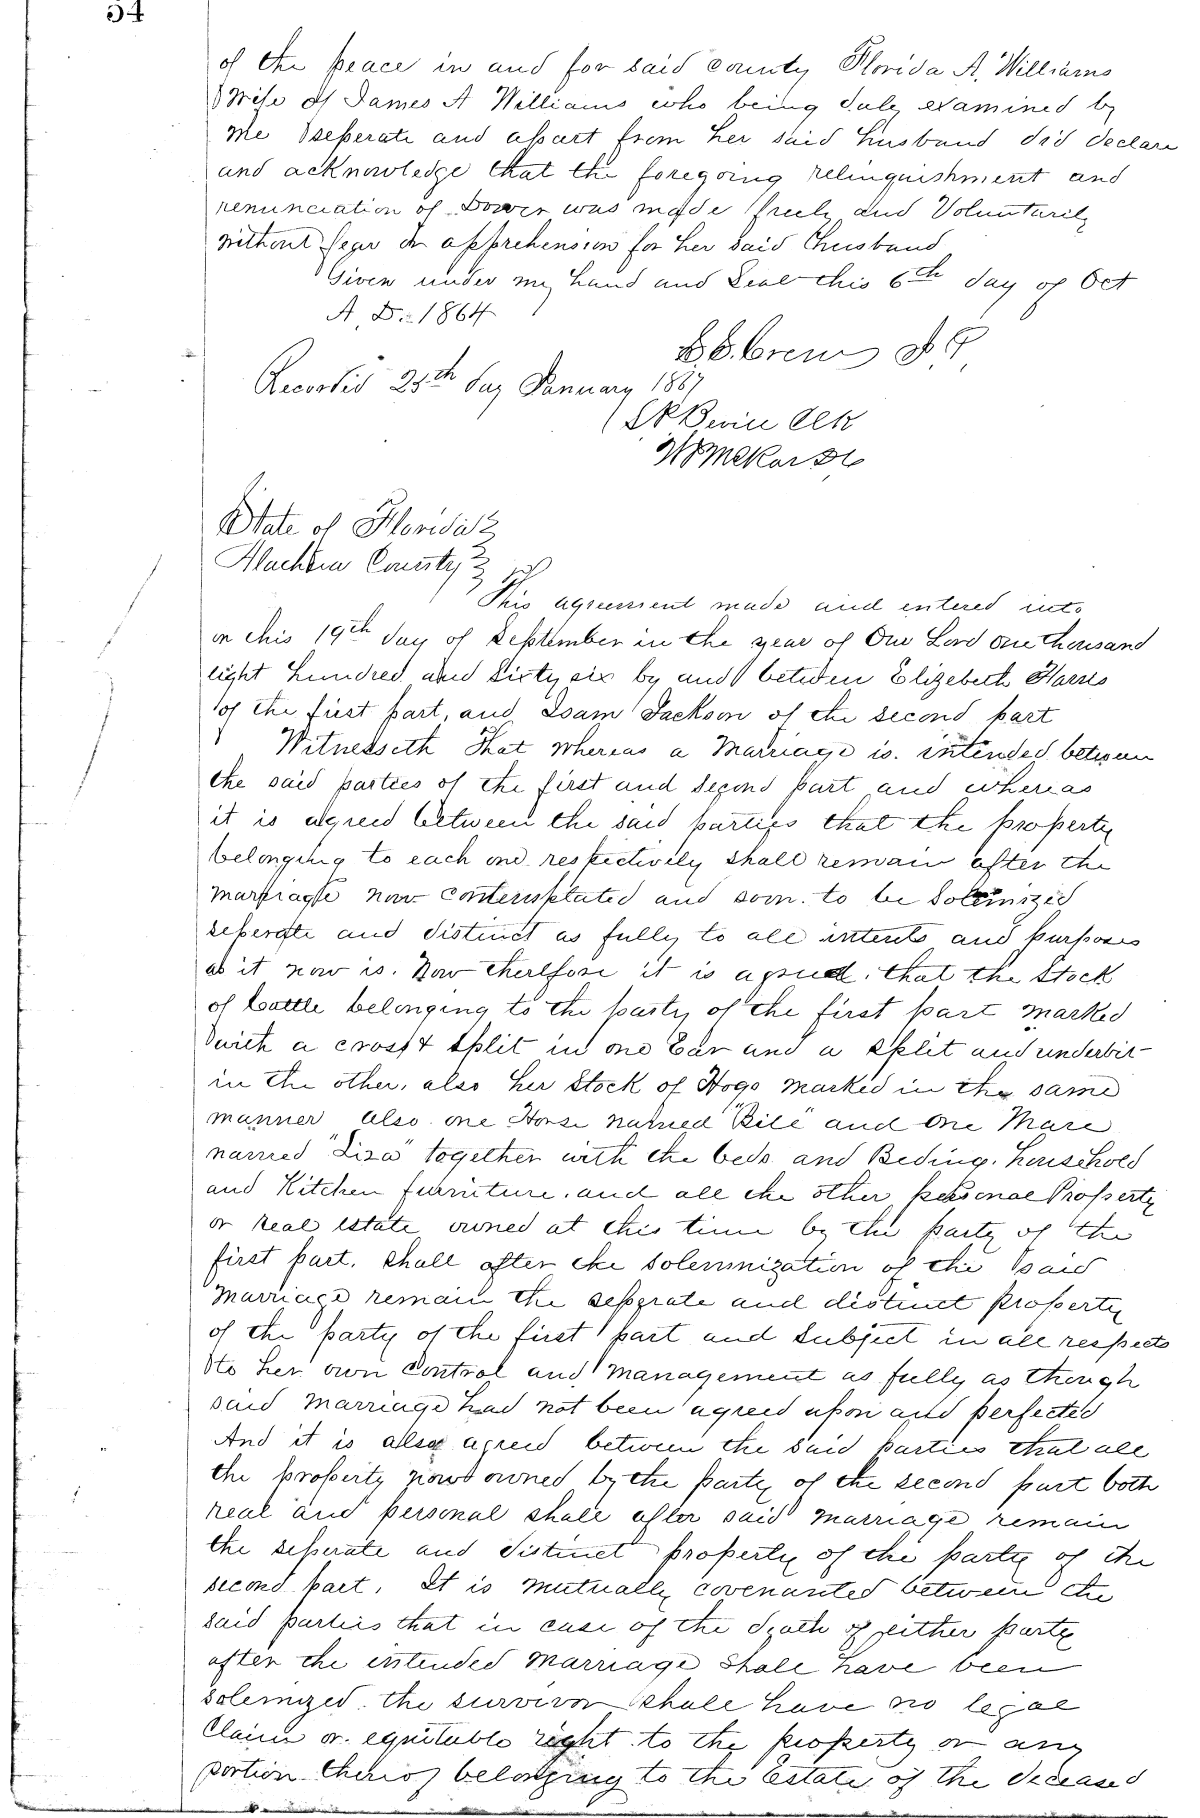 54
of the peace in and for said county Florida A. Williams
Wife of James A Williams who being duly examined by
me seperate and apart from her said husband did declare
and acknowledge that the foregoing relinquishment and
renunciation of Dower was made freely and Voluntarily
without fear or apprehension for her said husband
Given under my hand and Seal this 6th day of Oct
A. D. 1864
Recorded 25th day January 1867
Clk
State of Florida
Alachua County
This agreement made and entered into
on this 19th day of September in the year of Our Lord one thousand
eight hundred and sixty six by and between Elizebeth Harris
of the first part, and Isam Jackson of the second part
Witnesseth That whereas a Marriage is intended between
the said parties of the first and second part and whereas
it is agreed between the said parties that the property
belonging to each one respectively shall remain after the
marriage now contemplated and soon to be Solemized
seperate and distinct as fully to all intents and purposes
as it now is. Now therefore it is agreed that the Stock
of Cattle belonging to the party of the first part marked
with a cross & split in one Ear and a split and underbit
in the other, also her Stock of Hogs marked in the same
manner also one Horse named "Bill" and one Mare
named "Liza" together with the beds and Beding, household
and Kitchen furniture, and all the other personal Property
or real estate owned at this time by the party of the
first part, shall after the solemnization of the said
Marriage remain the seperate and distinct property
of the party of the first part and subject in all respects
to her own control and management as fully as though
said marriage had not been agreed upon and perfected
And it is also agreed between the said parties that all
the property now owned by the party of the second part both
real and personal shall after said marriage remain
the seperate and distinct property of the party of the
second part. It is mutually covenanted between the
said parties that in case of the death of either party
after the intended marriage shall have been
solemized the survivor shall have no legal
Claim or equitable right to the property or any
portion thereof belonging to the Estate of the deceased